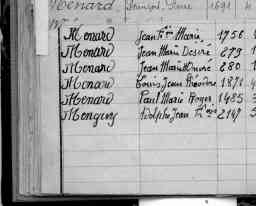 Menard François Pierre 1691
Menard Jean Fçois Marie 1756
Menard Jean Marie Desiré 279
Menard Jean Marie Honoré 280
Menard Louis Jean Théodore 1871
Menard Paul Marie Roger 1485 3
Menguy Adolphe Jean 2147